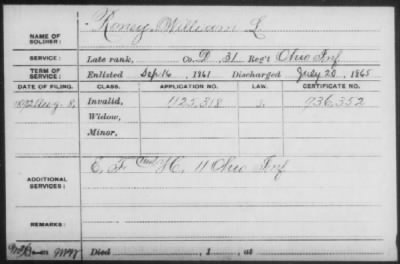 NAME OF SOLDIER: Roney, William L.
SERVICE: Late rank, Co. D, 31 Reg't Ohio Inf.
TERM OF SERVICE: Enlisted Sep. 16, 1861 Discharged July 20, 1865
DATE OF FILING. CLASS. APPLICATION NO. LAW. CERTIFICATE NO.
1892 Aug. 8, Invalid, 1125,318 936,352
Widow,
Minor,
ADDITIONAL SERVICES: E, F and H, 11 Ohio Inf
REMARKS:
Died , 1 , at